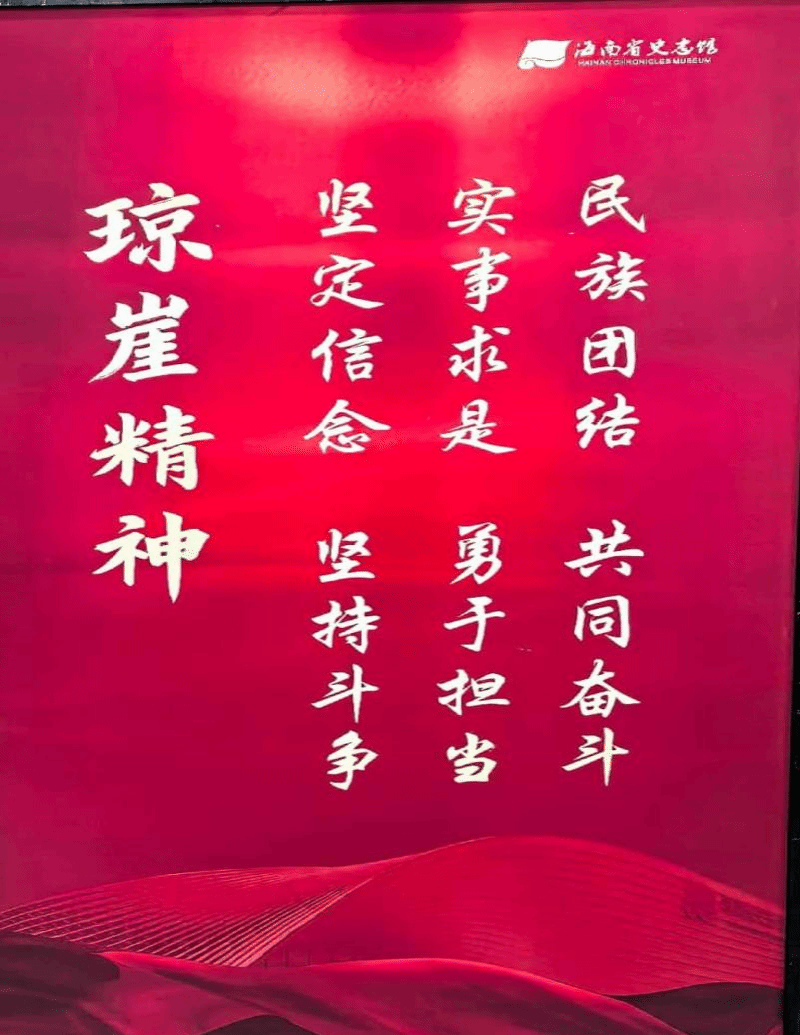 海南省史志馆
HAINAN CHRONICLES MUSEUM
琼崖精神
坚定信念 坚持斗争
实事求是 勇于担当
民族团结 共同奋斗